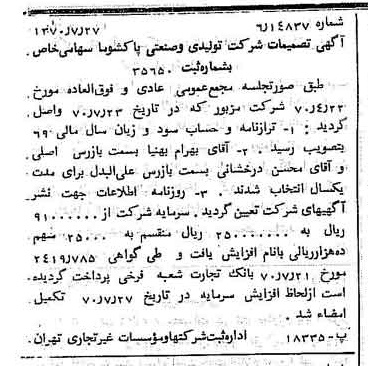 شماره ۶٫۱۴۸۳۷ ۱۳۷۰٫۷٫۲۷
آگهی تصمیمات شرکت تولیدی وصنعتی پاکشوما سهامی‌خاص
بشماره‌ثبت ۳۵۶۵۰
طبق صورتجلسه مجمع‌عمومی عادی و فوق‌العاده مورخ
۷۰٫۴٫۲۲ شرکت مزبور که در تاریخ ۷۰٫۷٫۲۳ واصل
گردید : ۱- ترازنامه و حساب سود و زیان سال مالی ۶۹
بتصویب رسید . ۲- آقای بهرام بهنیا بسمت بازرس اصلی
و آقای محسن درخشانی بسمت بازرس علی‌البدل برای مدت
یکسال انتخاب شدند . ۳- روزنامه اطلاعات جهت نشر
آگهیهای شرکت تعیین گردید . سرمایه شرکت از ۹۱۰۰۰۰۰۰
ریال به ۲۵۰۰۰۰۰۰۰ ریال منقسم به ۲۵۰۰۰ سهم
ده‌هزارریالی بانام افزایش یافت و طی گواهی ۲۴۱۹٫۷۸۵
مورخ ۷۰٫۷٫۲۱ بانک تجارت شعبه فرخی پرداخت گردیده
است ازلحاظ افزایش سرمایه در تاریخ ۷۰٫۷٫۲۷ تکمیل
امضاء شد .
پ-۱۸۳۳۵ اداره‌ثبت‌شرکتهاومؤسسات غیرتجاری تهران .